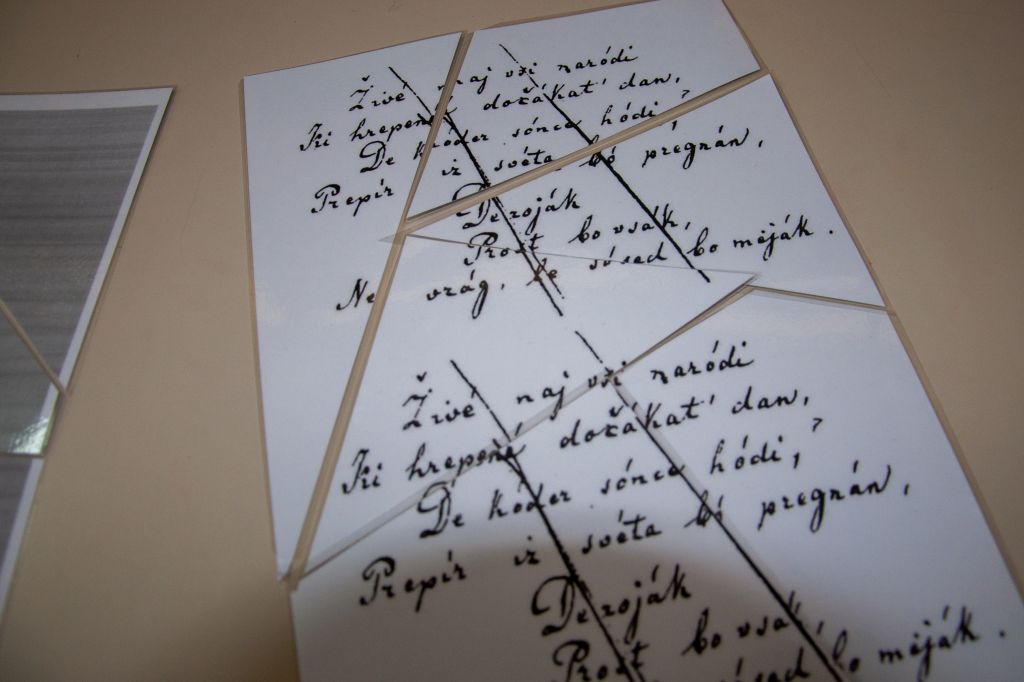 Živé naj vsi naródi
Ki hrepené dočakat' dan,
De kóder sónce hódi,
Prepír iz svéta bó pregnán,
De roják
Prost bo vsák,
Ne vrág, le sósed bo mèják.
Živé naj vsi naródi
Ki hrepené dočakat' dan,
De kóder sónce hódi,
Prepír iz svéta bó pregnán,
De roják
Prost bo vsák,
sósed bo mèják.